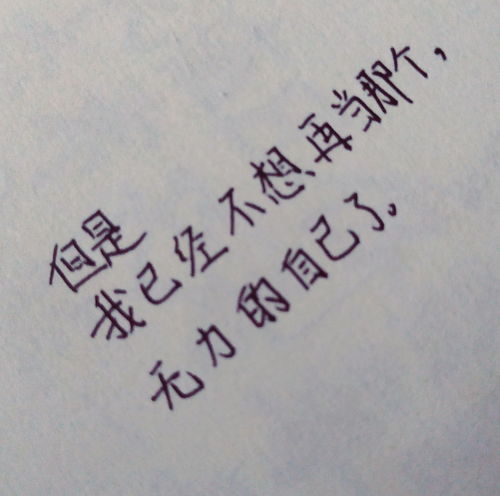 但是
我已经不想再当那个,
无力的自己了。